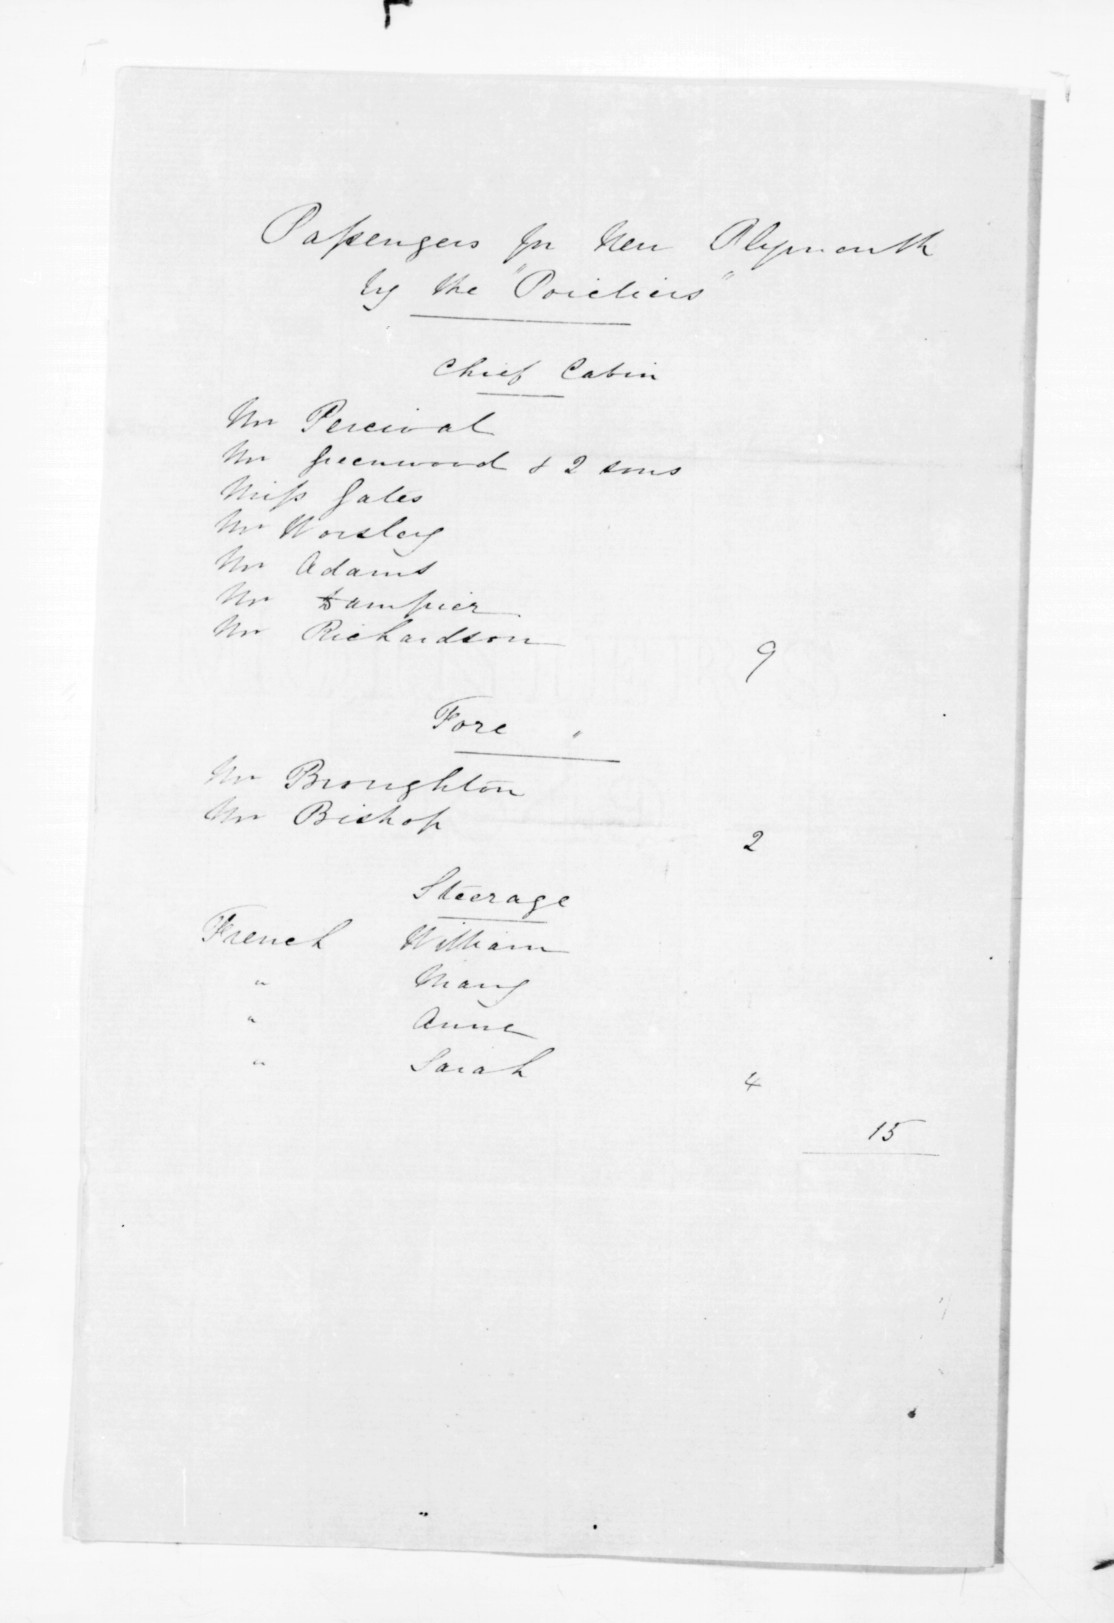 Passengers for New Plymouth
by the "Poictiers"
Chief Cabin
Mr Percival
Mr Greenwood & 2 sons
Miss Gates
Mr Worsley
Mr Adams
Mr Dampier
Mr Richardson
9
Fore "
Mr Broughton
Mr Bishop
2
Steerage
French William
" Mary
" Anne
" Sarah
4
15